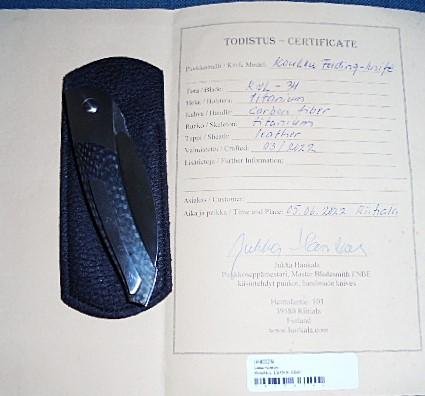 TODISTUS – CERTIFICATE
Puukkomalli / Knife Model: Koukku Folding-knife
Terä / Blade: RWL - 34
Helat / Bolsters: titanium
Kahva / Handle: Carbon fiber
Runko / Skeleton: titanium
Tuppi / Sheath: leather
Valmistettu / Crafted: 03/2022
Lisätietoja / Further Information:
Asiakas / Customer:
Aika ja paikka / Time and Place: 05.06.2022 Riitiala
Jukka Hankala
Jukka Hankala
Puukkoseppämestari, Master Bladesmith FNBE
käsintehdyt puukot, handmade knives
39580 Riitiala
Finland
www.hankala.com